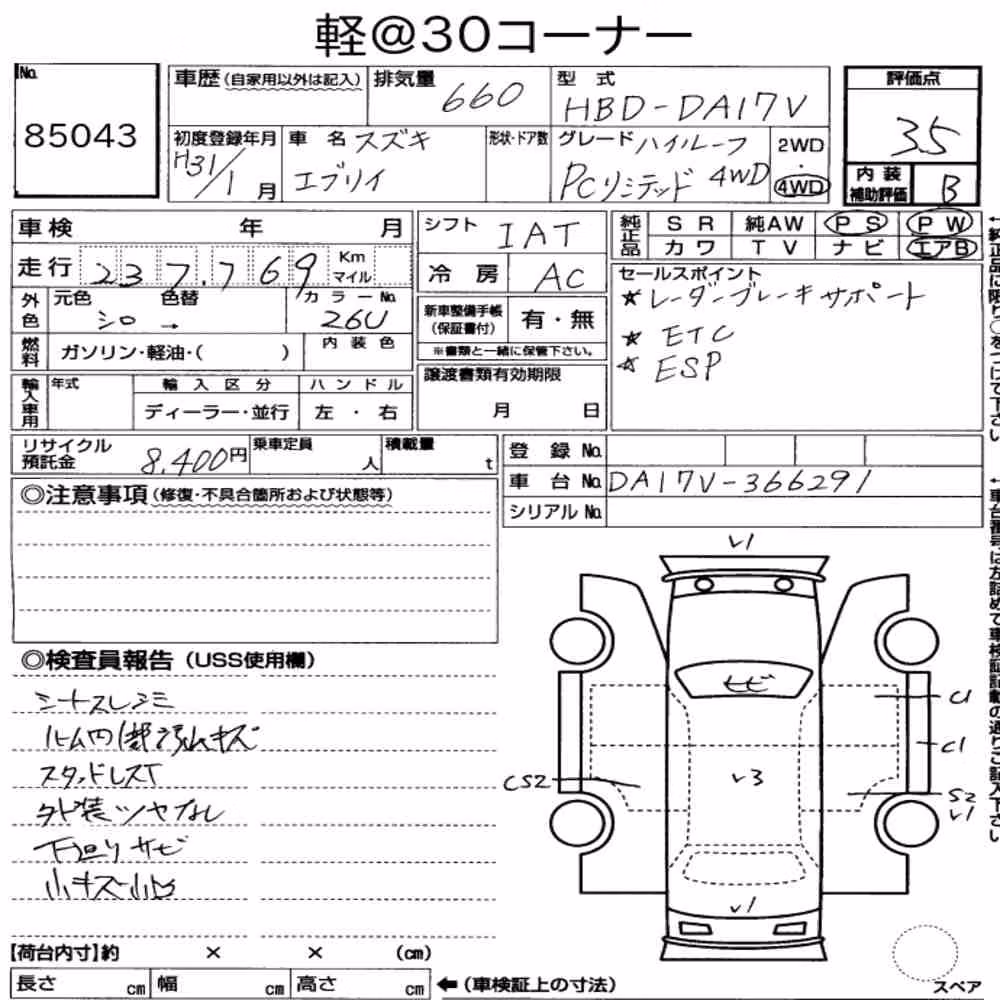 軽@30コーナー
No.
85043
車歴(自家用以外は記入)
排気量
660
型式
HBD-DA17V
評価点
3.5
初度登録年月
H31/1月
車名 スズキ
エブリイ
形状・ドア数
グレード ハイルーフ
PCリミテッド 4WD
2WD
・
4WD
内装
補助評価
B
車検 年 月
シフト IAT
純正品
SR 純AW PS PW
カワ TV ナビ エアB
走行 237,769 Km
マイル
冷房 AC
セールスポイント
★レーダーブレーキサポート
★ ETC
★ ESP
外色
元色 色替
シロ →
カラーNo.
26U
新車整備手帳
(保証書付)
有・無
※書類と一緒に保管下さい。
燃料
ガソリン・軽油・( )
内装色
輸入車用
年式
輸入区分
ディーラー・並行
ハンドル
左・右
譲渡書類有効期限
月 日
リサイクル
預託金
8,400円
乗車定員
人
積載量
t
登録No.
車台No. DA17V-366291
シリアルNo.
◎注意事項(修復・不具合箇所および状態等)
◎検査員報告(USS使用欄)
シートスレシミ
ルーム内
スタッドレスT
外装ツヤなし
下廻りサビ
小キズ小凹
【荷台内寸】約 × × (cm)
長さ cm 幅 cm 高さ cm
←(車検証上の寸法)
V1
ヒビ
C1
C1
V3
CS2
S2
V1
V1
スペア
←純正品に限り○をつけて下さい
←車台番号は左詰めで車検証記載の通りご記入下さい